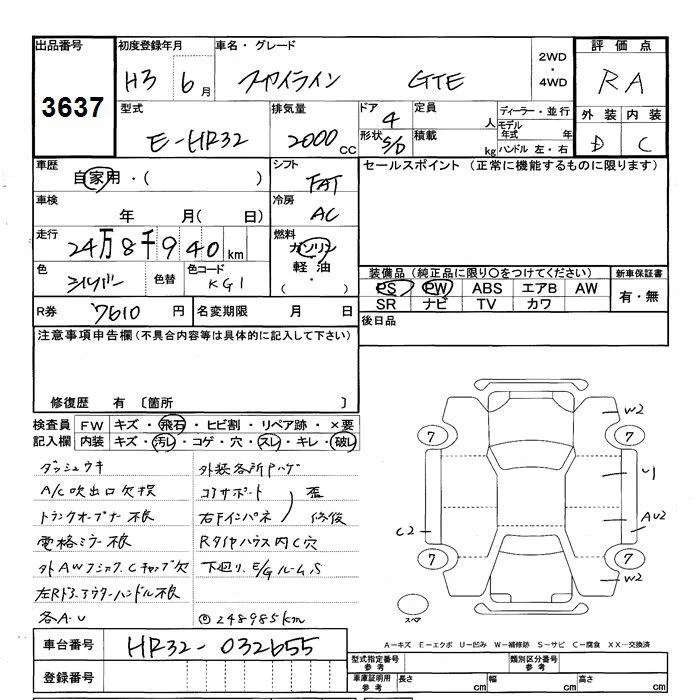 出品番号 初度登録年月 車名・グレード 2WD ・ 4WD 評価点
3637 H3 6月 スカイライン GTE RA
型式 排気量 ドア 定員 ディーラー・並行 外装 内装
E-HR32 2000cc 4 人 モデル年式 年 D C
形状 S/D 積載 kg ハンドル 左・右
車歴 シフト セールスポイント (正常に機能するものに限ります)
自家用・( ) FAT
車検 冷房
年 月( 日) AC
走行 燃料
24万8千940km ガソリン
軽油
(・)
色 シルバー 色替 色コード KG1
装備品 (純正品に限り○をつけてください) 新車保証書
PS PW ABS エアB AW 有・無
SR ナビ TV カワ
R券 7610円 名変期限 月 日 後日品
注意事項申告欄(不具合内容等は具体的に記入して下さい)
修復歴 有 〔箇所 〕
検査員 FW キズ・飛石・ヒビ割・リペア跡・×要
記入欄 内装 キズ・汚レ・コゲ・穴・スレ・キレ・破レ
ダッシュウキ 外装各所Pハゲ
A/C吹出口欠損 コアサポート
トランクオープナー不良 右Fインパネ 歪 修復
電格ミラー不良 Rタイヤハウス内C穴
外AW 下廻り、E/GルームS
左Rドアアウターハンドル不良
各A・U 248985km
7 7 7 7
W2
U1
AU2
W2
C2
スペア
A－キズ E－エクボ U－凹み W－補修跡 S－サビ C－腐食 XX－交換済
車台番号 HR32-032655
登録番号
型式指定番号 参考 類別区分番号 参考
車庫証明用 参考 長さ cm 幅 cm 高さ cm